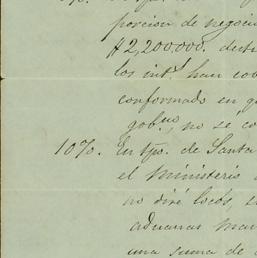 porcion de negoci
$2,200,000. dest
los intˢ. han cob
conformado en q
gobⁿᵒ, no se co
10%. En tpo. de Santa
el ministerio
no diré locos, s
aduanas mar
una suma de